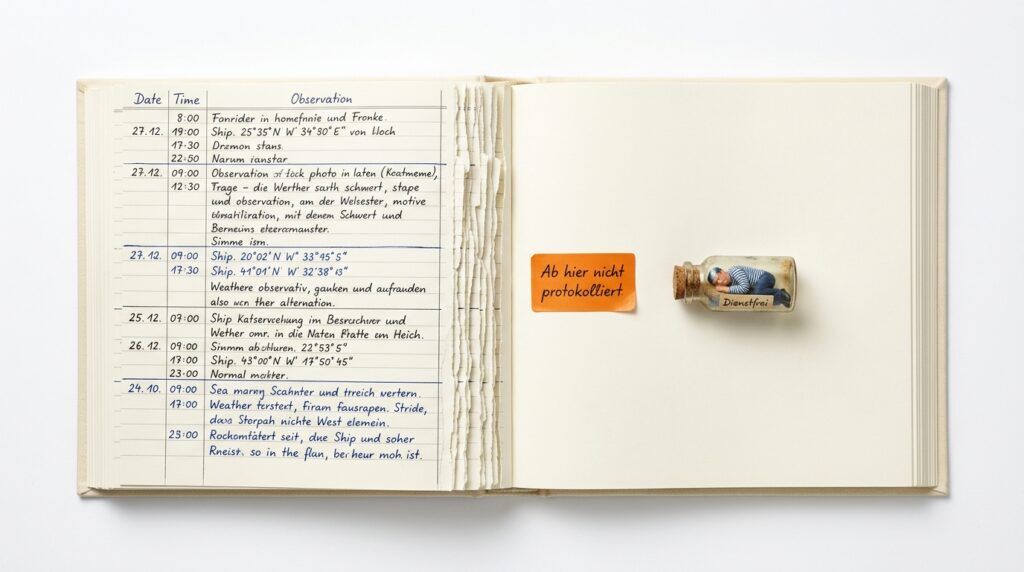 Date Time Observation
8:00 Fonrider in homefnnie und Fronke.
27.12. 19:00 Ship. 25°35°N W' 34°80'E" von Hoch
17·30 Drzmon stans.
22:50 Narum ianstar
27.12. 09:00 Observation photo in laten
12:30 Trage – die Werther sarth schwert, stape
und observation, am der Welsester, motive
mit denem Schwert und
Berneins
Simme ism.
27.12. 09:00 Ship. 20°02'N W° 33°45'5"
17·30 Ship. 41°01'N W' 32'38°13"
Weathere observativ, ganken und aufrauden
also ther alternation.
25.12. 07:00 Ship im und
Wether omr. in die Naten em Heich.
26.12. 09:00 22°53'5"
17:00 Ship. 43°00'N W' 17°50'45"
23·00 Normal
24.10. 09:00 Sea und treich vertern.
17:00 Weather Firam fausrapen. Stride,
Storpah nichte West elemein.
23:00 seit, due Ship und soher
Rneist, so in the flan, bei heur moh ist.
Ab hier nicht
protokolliert
Dienstfrei